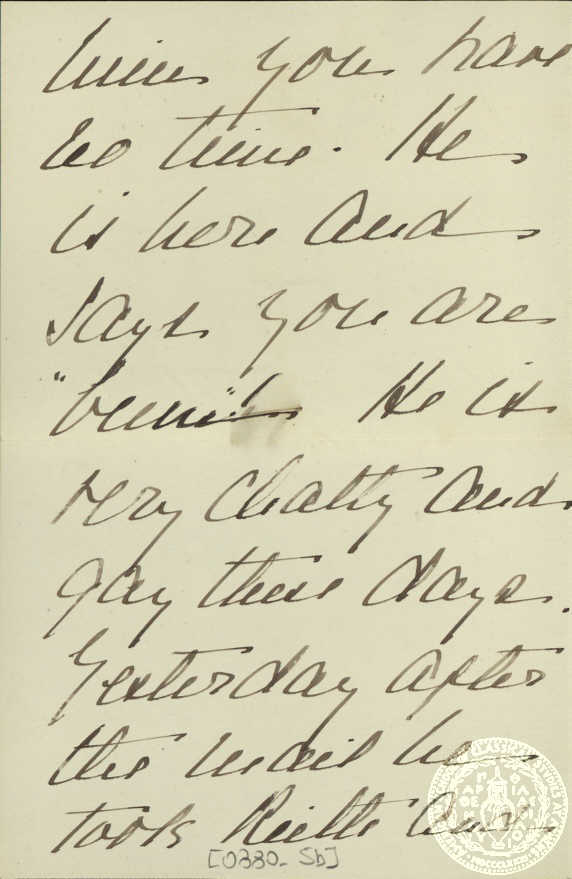 you have
no time. He
is here and
says you are
He is
very chatty and
gay these days.
Yesterday after
the mail he
took and
[0330_5b]